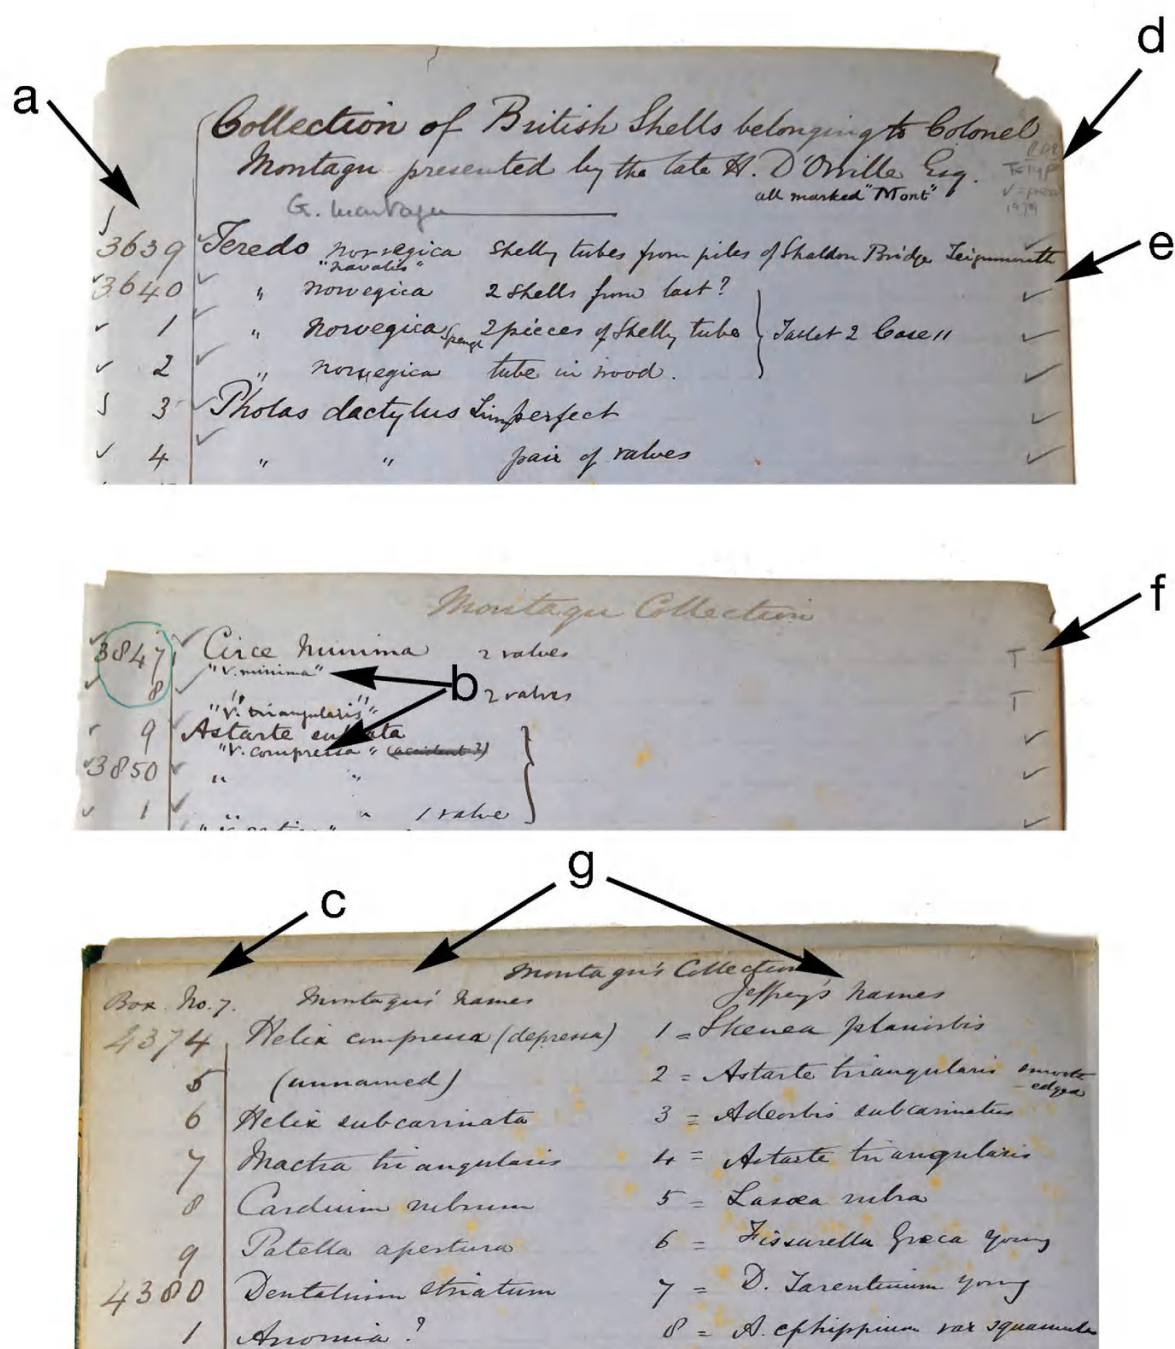 a
d
Collection of British Shells belonging to Colonel
Montagu presented by the late H. D'Orville Esq.
all marked "Mont"
G. Montagu
3639 Teredo norvegica shelly tubes from piles of Shaldon Bridge Teignmouth
"navalis"
e
3640 " norvegica 2 shells from last?
1 " norvegica 2 pieces of shelly tube Tablet 2 Case 11
2 " norvegica tube in wood.
3 Pholas dactylus imperfect
4 " " pair of valves
f
Montagu Collection
3847 Circe minima 2 valves T
"V. minima"
b
8 2 valves T
"V. triangularis"
9 Astarte sulcata
"V. compressa"
3850 " "
1 " " 1 valve
g
c
Montagu's Collection
Box No. 7. Montagu's names Jeffrey's names
4374 Helix compressa (depressa) 1 = Skenea planorbis
5 (unnamed) 2 = Astarte triangularis smooth
edged
6 Helix subcarinata 3 = Adeorbis subcarinatus
7 Mactra triangularis 4 = Astarte triangularis
8 Cardium rubrum 5 = Lasæa rubra
9 Patella apertura 6 = Fissurella Græca young
4380 Dentalium striatum 7 = D. Tarentinum young
1 Anomia? 8 = A. ephippium var squamula